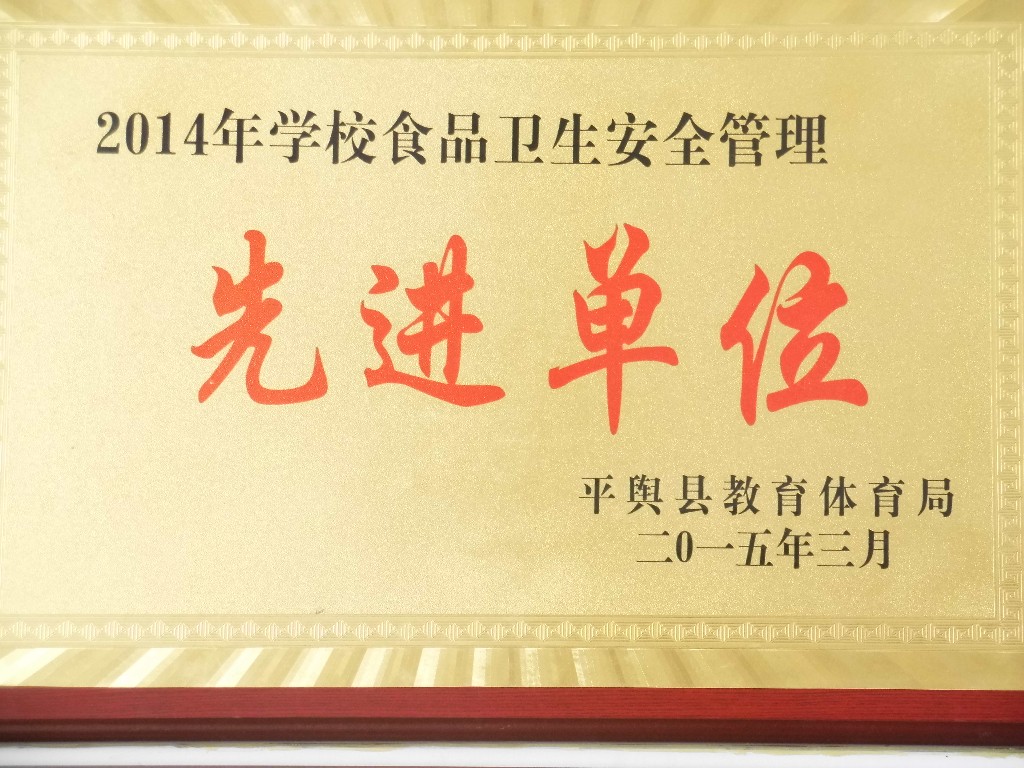 2014年学校食品卫生安全管理
先进单位
平舆县教育体育局
二0一五年三月